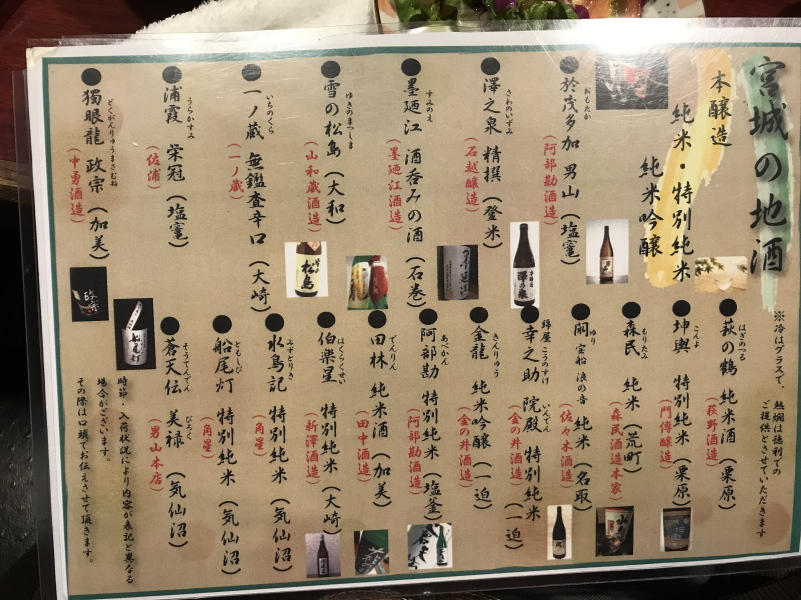 宮城の地酒
本醸造
純米・特別純米
純米吟醸
おもたか
於茂多加 男山（塩竈）
（阿部勘酒造）
さわのいずみ
澤之泉 精撰（登米）
（石越醸造）
すみのえ
墨廼江 酒呑みの酒（石巻）
（墨廼江酒造）
ゆきのまつしま
雪の松島（大和）
（山和蔵酒造）
いちのくら
一ノ蔵 無鑑査辛口（大崎）
（一ノ蔵）
うらかすみ
浦霞 栄冠（塩竈）
（佐浦）
どくがんりゅうまさむね
獨眼龍 政宗（加美）
（中勇酒造）
※冷はグラスで、熱燗は徳利での
ご提供とさせていただきます
はぎのつる
萩の鶴 純米酒（栗原）
（萩野酒造）
こんよ
坤輿 特別純米（栗原）
（門傳醸造）
もりたみ
森民 純米（荒町）
（森民酒造本家）
ゆり
閖 宝船 浪の音 純米（名取）
（佐々木酒造）
綿屋 こうのすけ いんでん
幸之助 院殿 特別純米（一迫）
（金の井酒造）
きんりゅう
金龍 純米吟醸（一迫）
（金の井酒造）
あべかん
阿部勘 特別純米（塩釜）
（阿部勘酒造）
でんりん
田林 純米酒（加美）
（田中酒造）
はくらくせい
伯楽星 特別純米（大崎）
（新澤酒造）
みずとりき
水鳥記 特別純米（気仙沼）
（角星）
ともしび
船尾灯 特別純米（気仙沼）
（角星）
そうてんでん びろく
蒼天伝 美禄（気仙沼）
（男山本店）
時節・入荷状況により内容が表記と異なる
場合がございます。
その際は口頭でお伝えさせて頂きます。